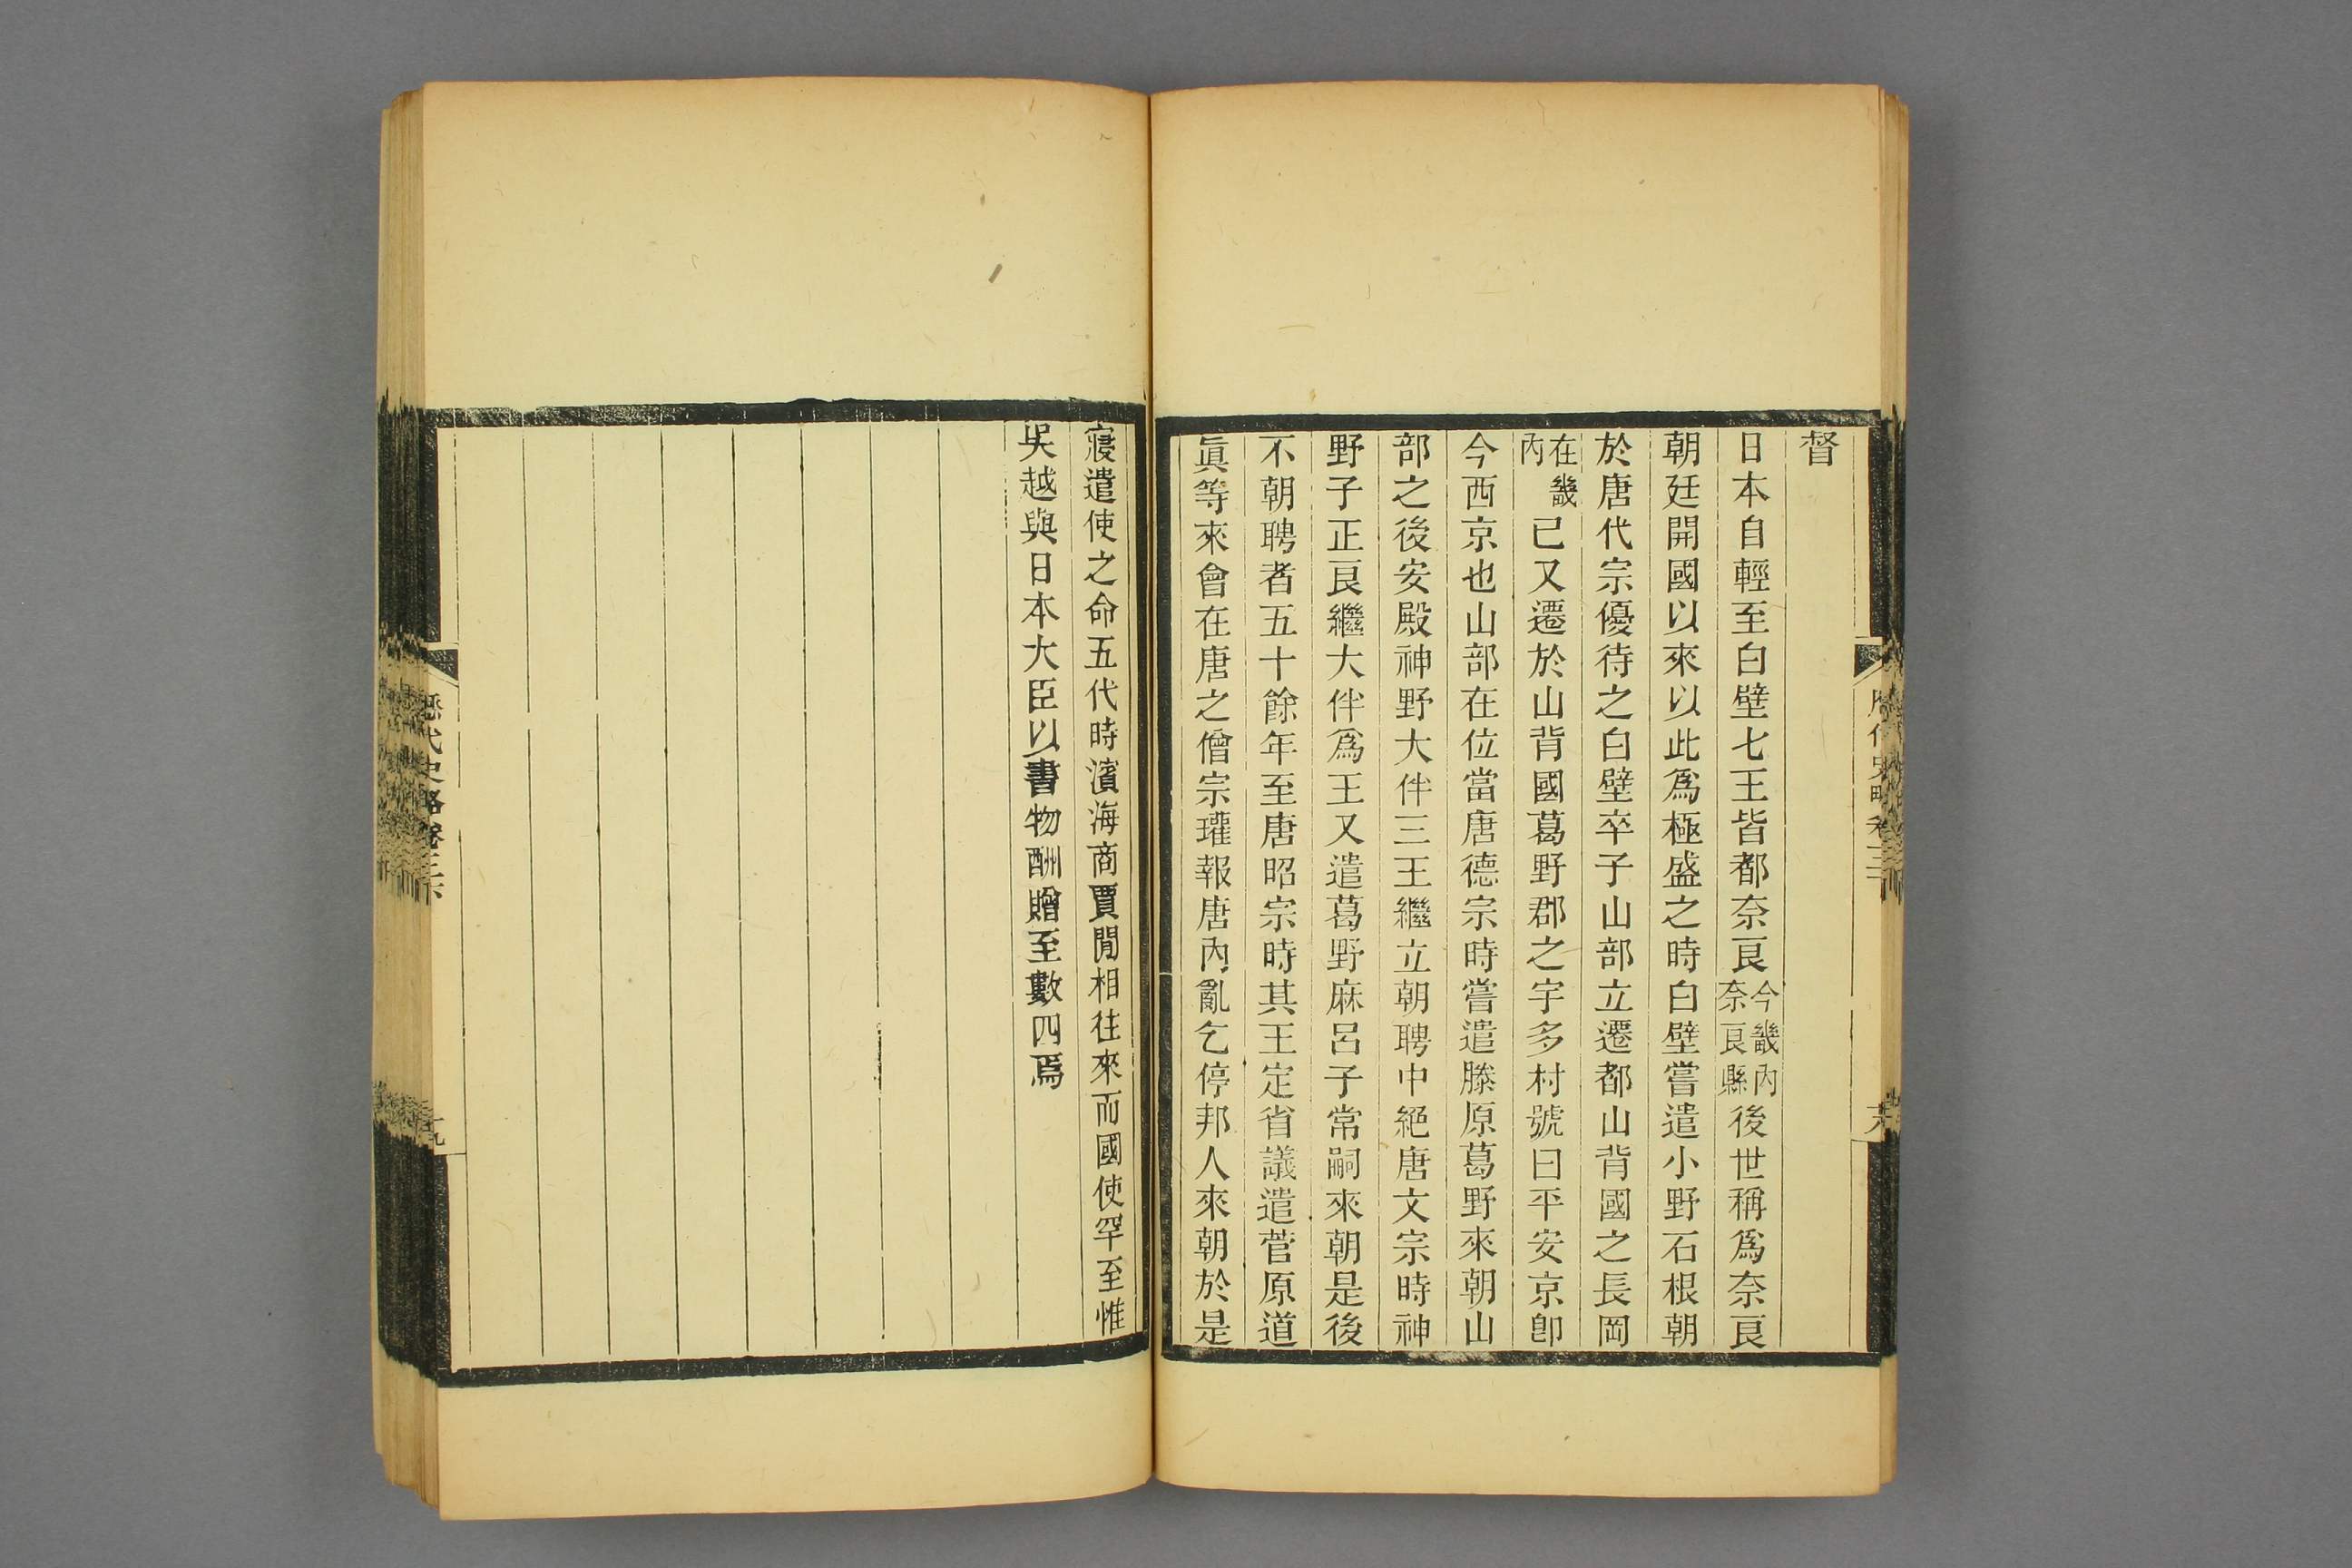 督
日本自輕至白壁七王皆都奈良今畿內奈良縣後世稱爲奈良
朝廷開國以來以此爲極盛之時白壁嘗遣小野石根朝
於唐代宗優待之白壁卒子山部立遷都山背國之長岡
在畿內已又遷於山背國葛野郡之宇多村號曰平安京卽
今西京也山部在位當唐德宗時嘗遣滕原葛野來朝山
部之後安殿神野大伴三王繼立朝聘中絕唐文宗時神
野子正良繼大伴爲王又遣葛野麻呂子常嗣來朝是後
不朝聘者五十餘年至唐昭宗時其王定省議遣菅原道
眞等來會在唐之僧宗瓘報唐內亂乞停邦人來朝於是
寢遣使之命五代時濱海商賈閒相往來而國使罕至惟
吳越與日本大臣以書物酬贈至數四焉
歷代史略卷三下
十九